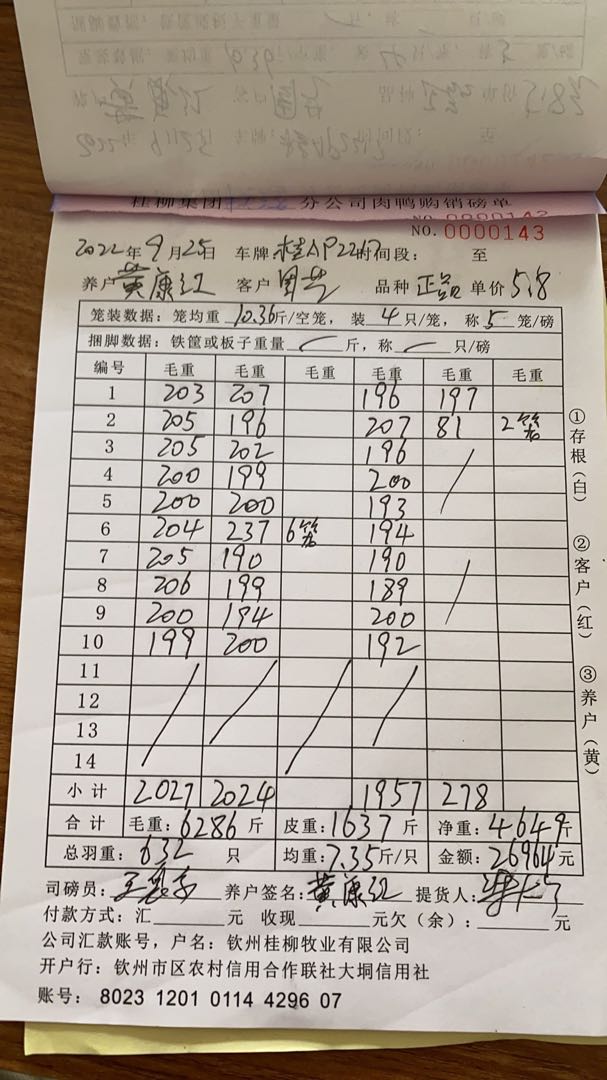 桂柳集团 分公司肉鸭购销磅单
NO. 0000142
NO. 0000143
2022年9月25日 车牌:桂AP2267 时间段: 至
养户 黄康江 客户 品种 单价 5.8
笼装数据:笼均重 10.36 斤/空笼,装 4 只/笼,称 5 笼/磅
捆脚数据:铁筐或板子重量 斤,称 只/磅
编号 毛重 毛重 毛重 毛重 毛重 毛重
1 203 207 196 197
2 205 196 207 81 2笼
3 205 202 196
4 200 199 200
5 200 200 193
6 204 237 6笼 194
7 205 190 190
8 206 199 189
9 200 194 200
10 199 200 192
11
12
13
14
小计 2027 2024 1957 278
合计 毛重:6286斤 皮重:1637斤 净重:4649斤
总羽重:632只 均重:7.35斤/只 金额:26964元
司磅员: 养户签名:黄康江 提货人:
付款方式:汇 元 收现 元欠(余): 元
公司汇款账号,户名:钦州桂柳牧业有限公司
开户行:钦州市区农村信用合作联社大垌信用社
账号:8023 1201 0114 4296 07
①存根(白)
②客户(红)
③养户(黄)